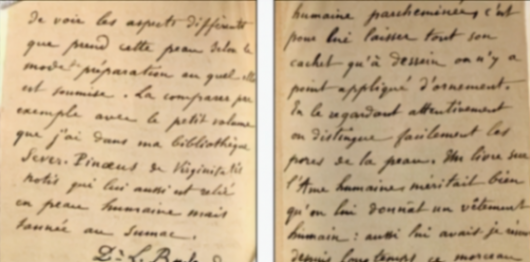 de voir les aspects différents
que prend cette peau selon le
mode préparation au quel elle
est soumise. La comparer par
exemple avec le petit volume
que j'ai dans ma bibliothèque
Sever. Pinaeus de Virginitatis
notis qui lui aussi est relié
en peau humaine mais
tannée au sumac.
Dr. L. 
humaine parcheminée, c'est
pour lui laisser tout son
cachet qu'à dessein on n'y a
point appliqué d'ornement.
En le regardant attentivement
on distingue facilement les
pores de la peau. Un livre sur
l'Ame humaine méritait bien
qu'on lui donnât un vêtement
humain : aussi lui avais-je
depuis longtemps ce morceau